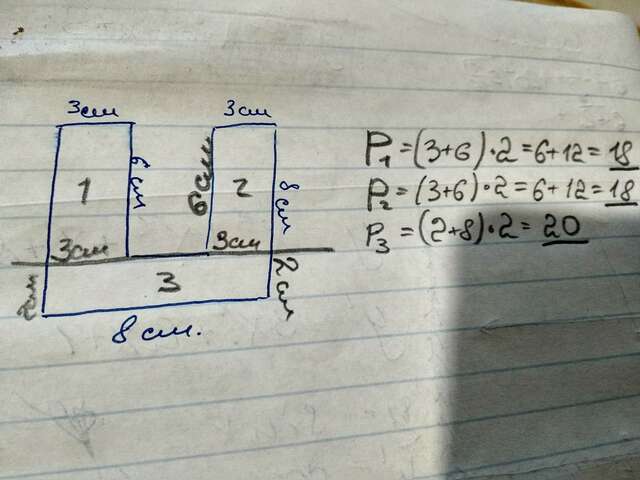 3см 3см
6см 6см 8см
1 2
3см 3см
2см 3 2см
8 см.
P₁ = (3+6)·2 = 6+12 = 18
P₂ = (3+6)·2 = 6+12 = 18
P₃ = (2+8)·2 = 20